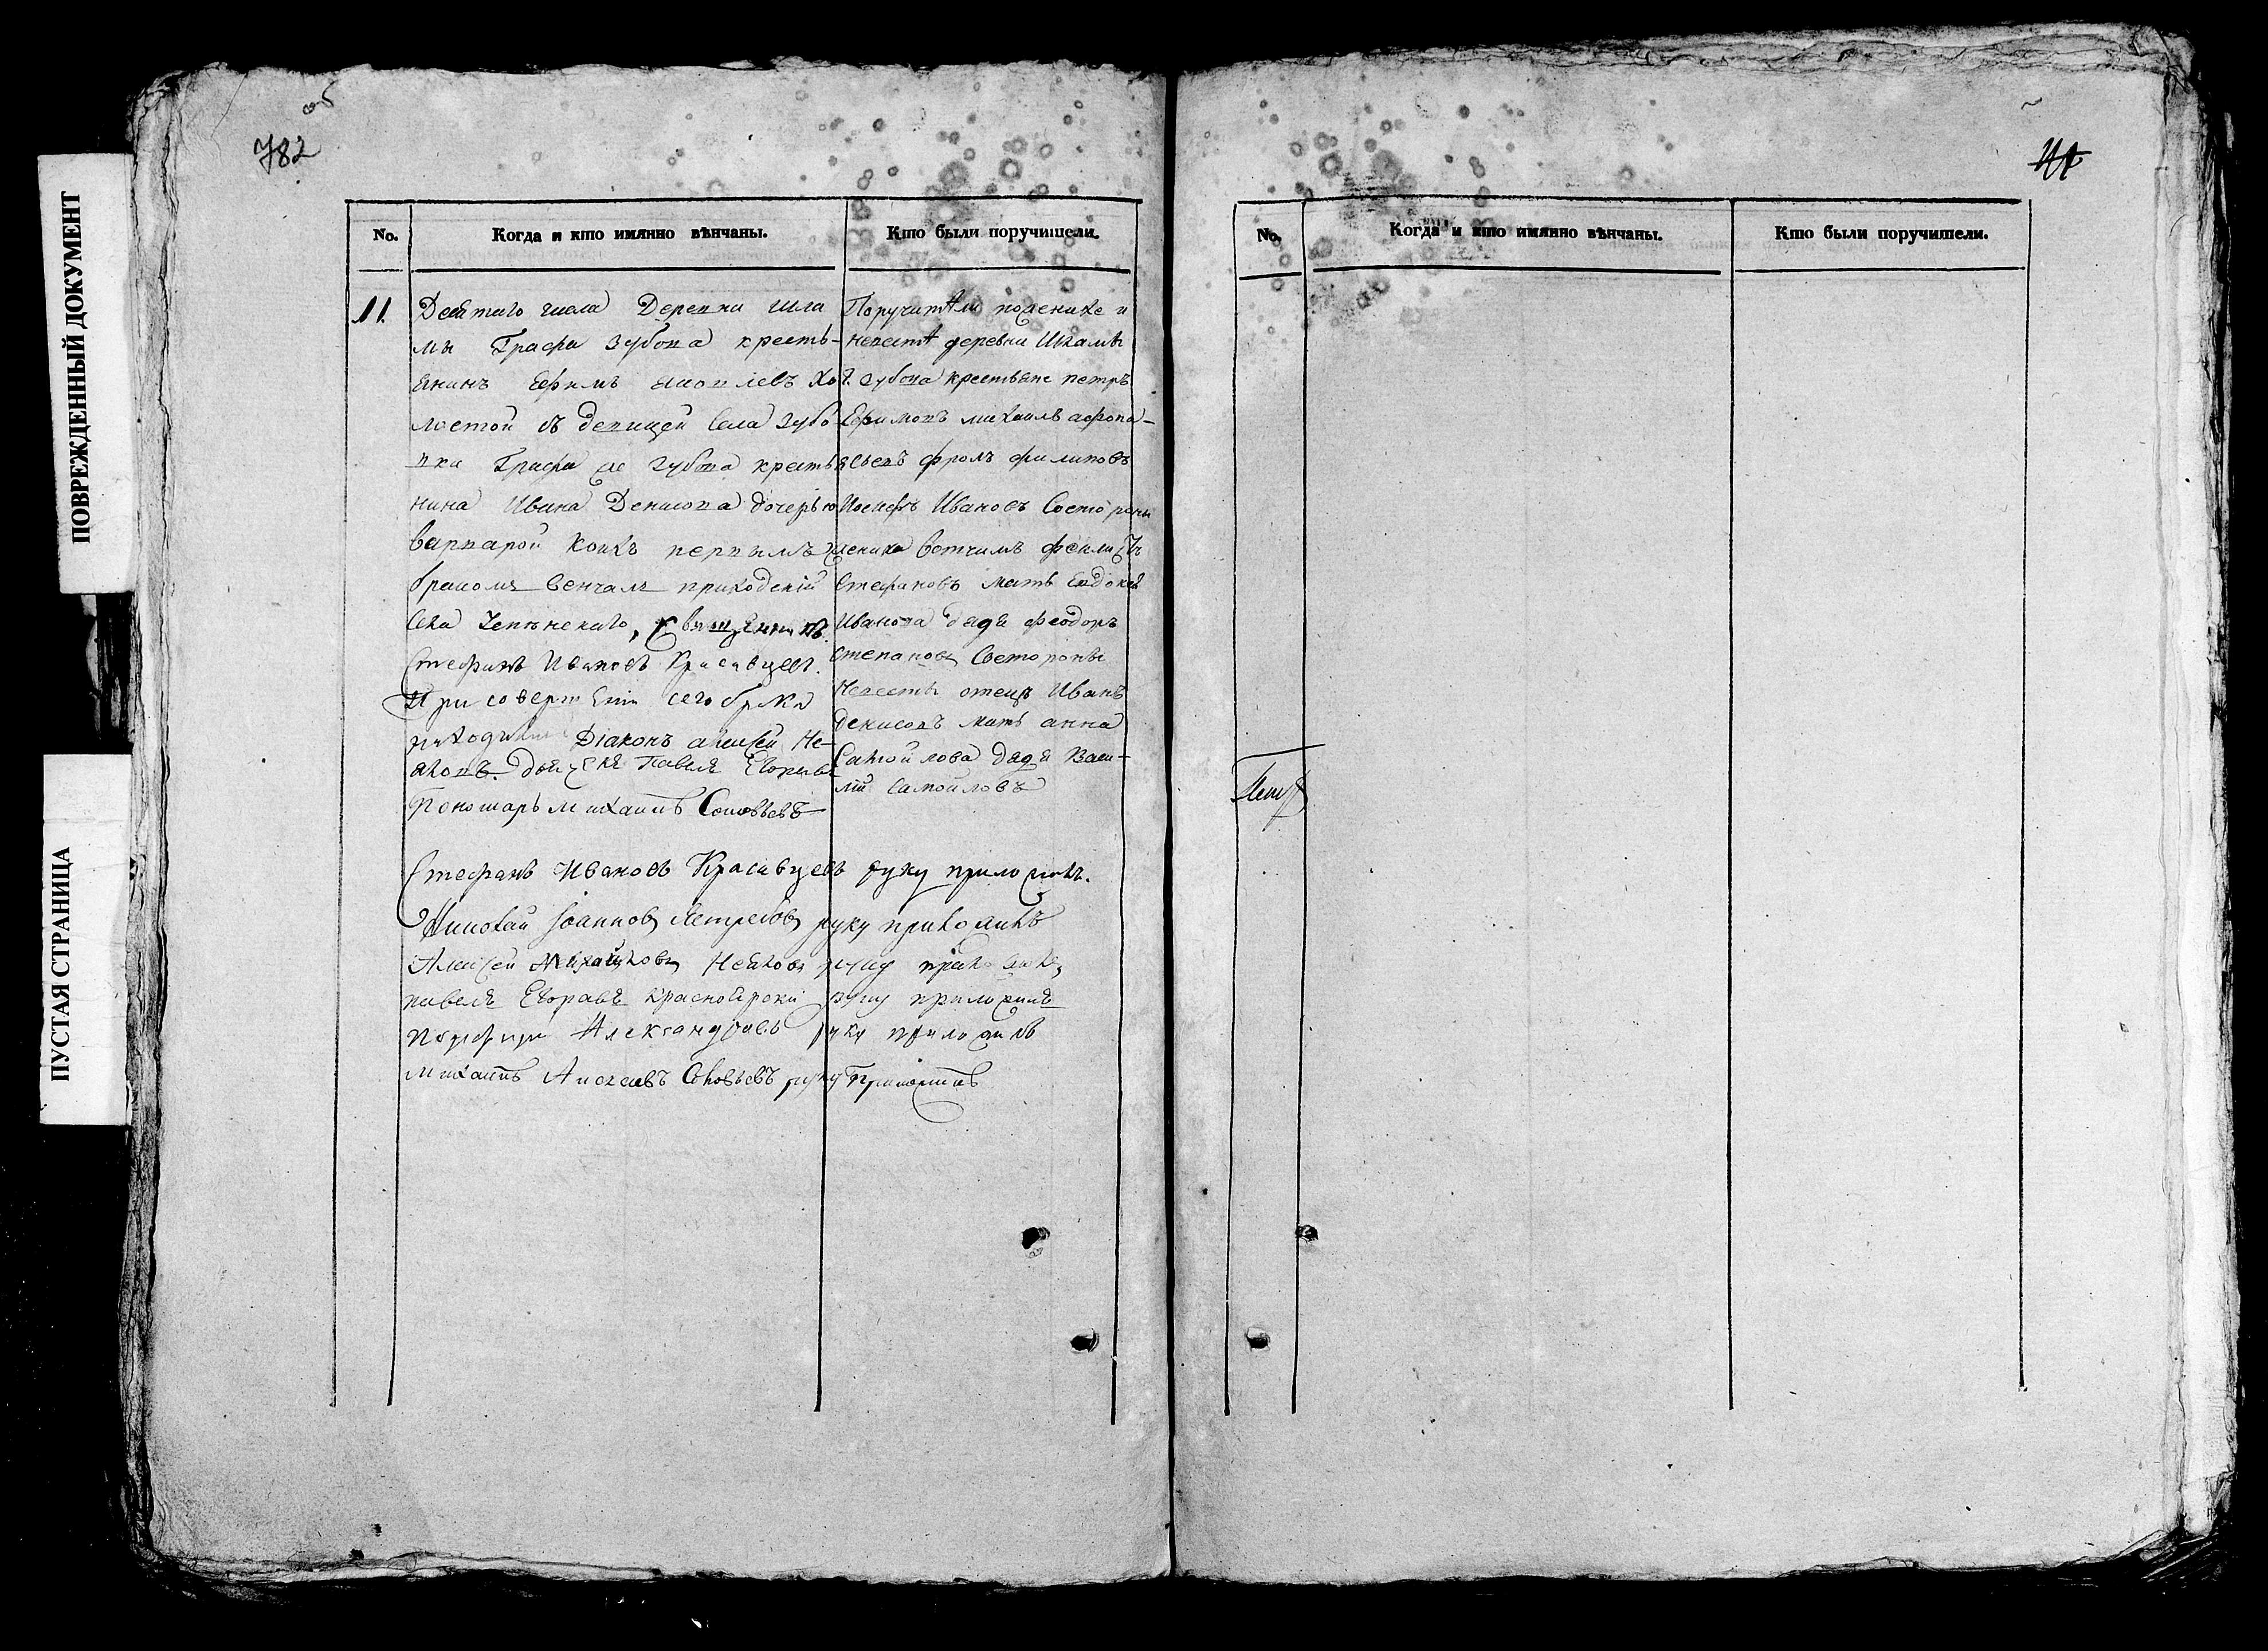 об
782
ПОВРЕЖДЕННЫЙ ДОКУМЕНТ
ПУСТАЯ СТРАНИЦА
No. Когда и кто имянно вѣнчаны. Кто были поручители.
11.
Десятаго числа Деревни Шка
мы Графа Зубова кресть-
янинъ Ефимъ Яковлевъ Хо
лостой съ девицей Села Зубо
вки Графа же Зубова крестья
нина Ивана Денисова дочерью
варварой коихъ первымъ
бракомъ венчалъ приходскій
Села, священникъ
Стефанъ Ивановъ Красавцевъ.
При соверш сего брка
находи Діаконъ алексей Не-
Павелъ Егоров
Пономарь михаилъ Соловьевъ
Поручители по женихе и
невесте деревни Шкамы
г. зубова крестьяне петръ
Ефимовъ михаилъ афона-
сьевъ фролъ филиповъ
Иосифъ Ивановъ Состороны
жениха вотчимъ
Стефановъ мать Евдокея
Иванова дядя феодоръ
Степановъ Состороны
Невесты отецъ Иванъ
денисовъ мать анна
Самойлова дядя Васи-
лій Самойловъ
Стефанъ Ивановъ Красавцевъ руку приложилъ.
Николай Іоанновъ Ястребовъ руку приложилъ
Алексей Михайловъ руку приложилъ
павелъ Егоравъ красноярскій руку приложилъ
Порфири Александровъ руку приложилъ
михаилъ Алексеевъ Соловьевъ руку Приложилъ
No. Когда и кто имянно вѣнчаны. Кто были поручители.